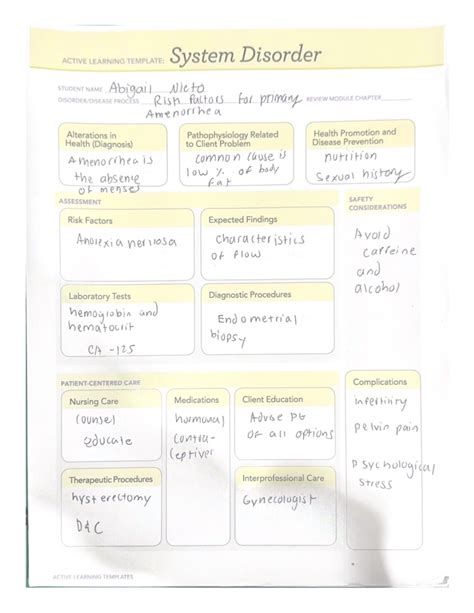 ACTIVE LEARNING TEMPLATE: System Disorder
STUDENT NAME Abigail Nieto
DISORDER/DISEASE PROCESS Risk factors for primary Amenorrhea REVIEW MODULE CHAPTER
Alterations in
Health (Diagnosis)
Amenorrhea is
the absense
of menses
Pathophysiology Related
to Client Problem
common cause is
low % of body
fat
Health Promotion and
Disease Prevention
nutrition
Sexual history
ASSESSMENT
SAFETY
CONSIDERATIONS
Risk Factors
Anorexia nervosa
Expected Findings
Characteristics
of flow
Avoid
caffeine
and
alcohol
Laboratory Tests
hemoglobin and
hematocrit
CA-125
Diagnostic Procedures
Endometrial
biopsy
PATIENT-CENTERED CARE
Nursing Care
Counsel
educate
Medications
hormonal
contra-
ceptives
Client Education
Advise
of all options
Complications
infertility
pelvin pain
Psychological
stress
Therapeutic Procedures
hysterectomy
D&C
Interprofessional Care
Gynecologist
ACTIVE LEARNING TEMPLATES